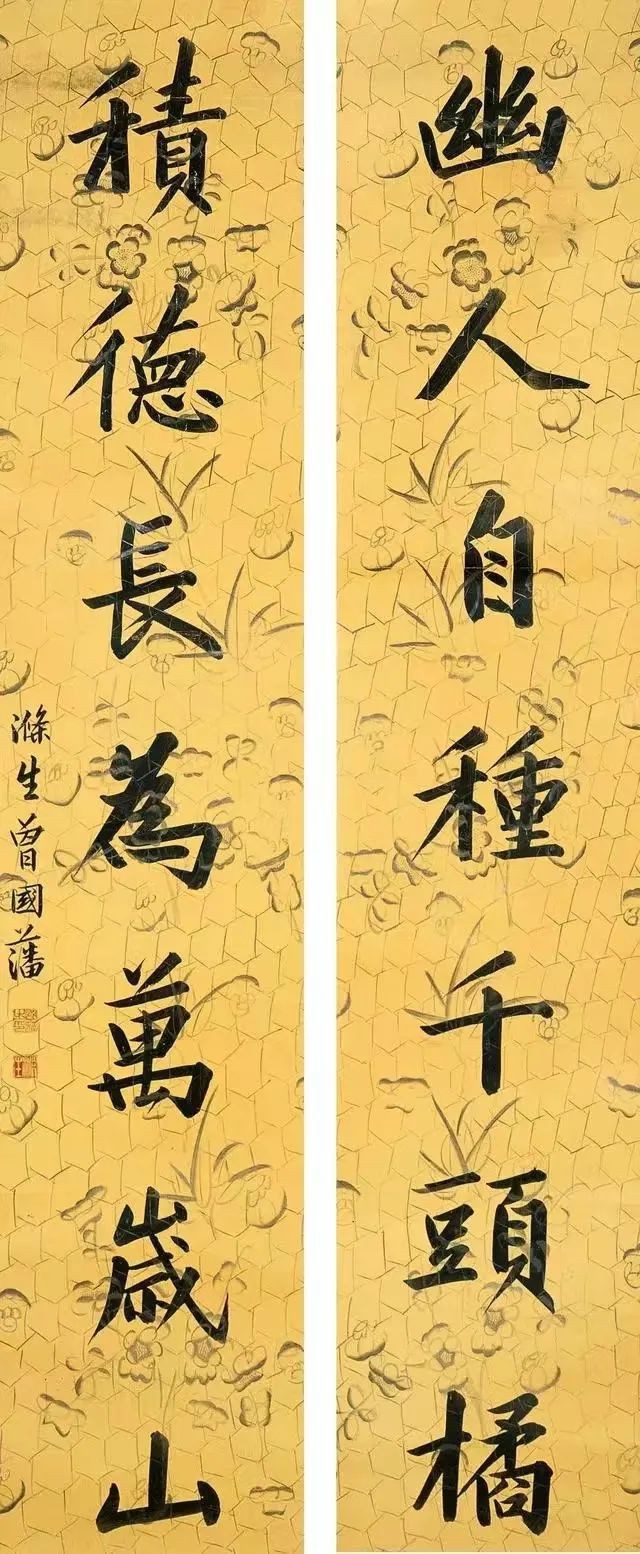 幽人自種千頭橘
積德長為萬歲山
滌生曾國藩